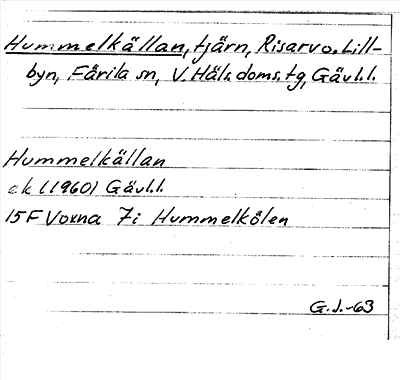 Hummelkällan, tjärn, Risarv o. Lill-
byn, Färila sn, V. Häls. doms. tg, Gävl.l.
Hummelkällan
ek (1960) Gävl.l.
15F Voxna 7i Hummelkölen
G.J.-63